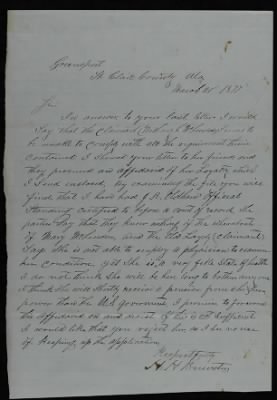 Greensport
St Clair County Ala
March 21st 1877
Sir
In answer to your last letter I would
Say that the claimant
to be unable to comply with all the requirement therein
contained I showed your letter to his friend and
they procured an affidavid of his Loyalty which
I Send enclosed, by examining the file you will
find that I have had J. R. official
Standing Certified to before a court of record, the
parties Say that they know nothing of the
of Mary and the old Lady (claimant)
Says She is not able to employ a physician to examine
him condition yet She is a very feble State of health
I do not think She will be here long to bother any one
I think She will Shortly receive a pension from a higher
power than the U.S. government I promise to forward
the affidavid on and desist if this is not Sufficient
I would like that you reject him so I be no use
of keeping up the application
Respectfully